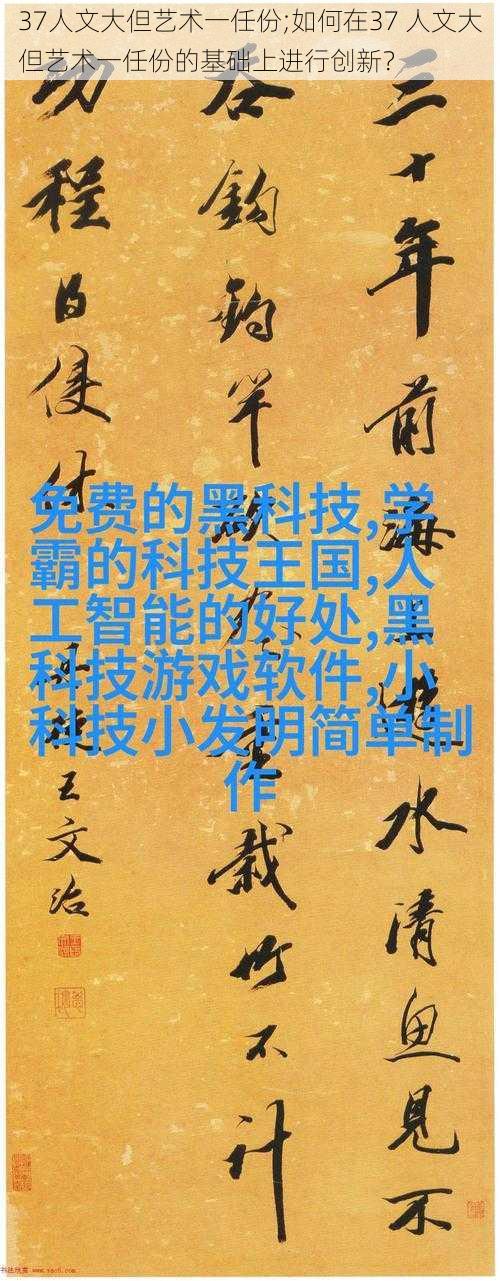 37人文大但艺术一任份;如何在37 人文大
但艺术一任份的基础上进行创新?
三十年前海遊水清魚見不
吞鉤釣竿重栽竹不計
功程得便休
王文治
免费的黑科技,学
霸的科技王国,人
工智能的好处,黑
科技游戏软件,小
科技小发明简单制
作